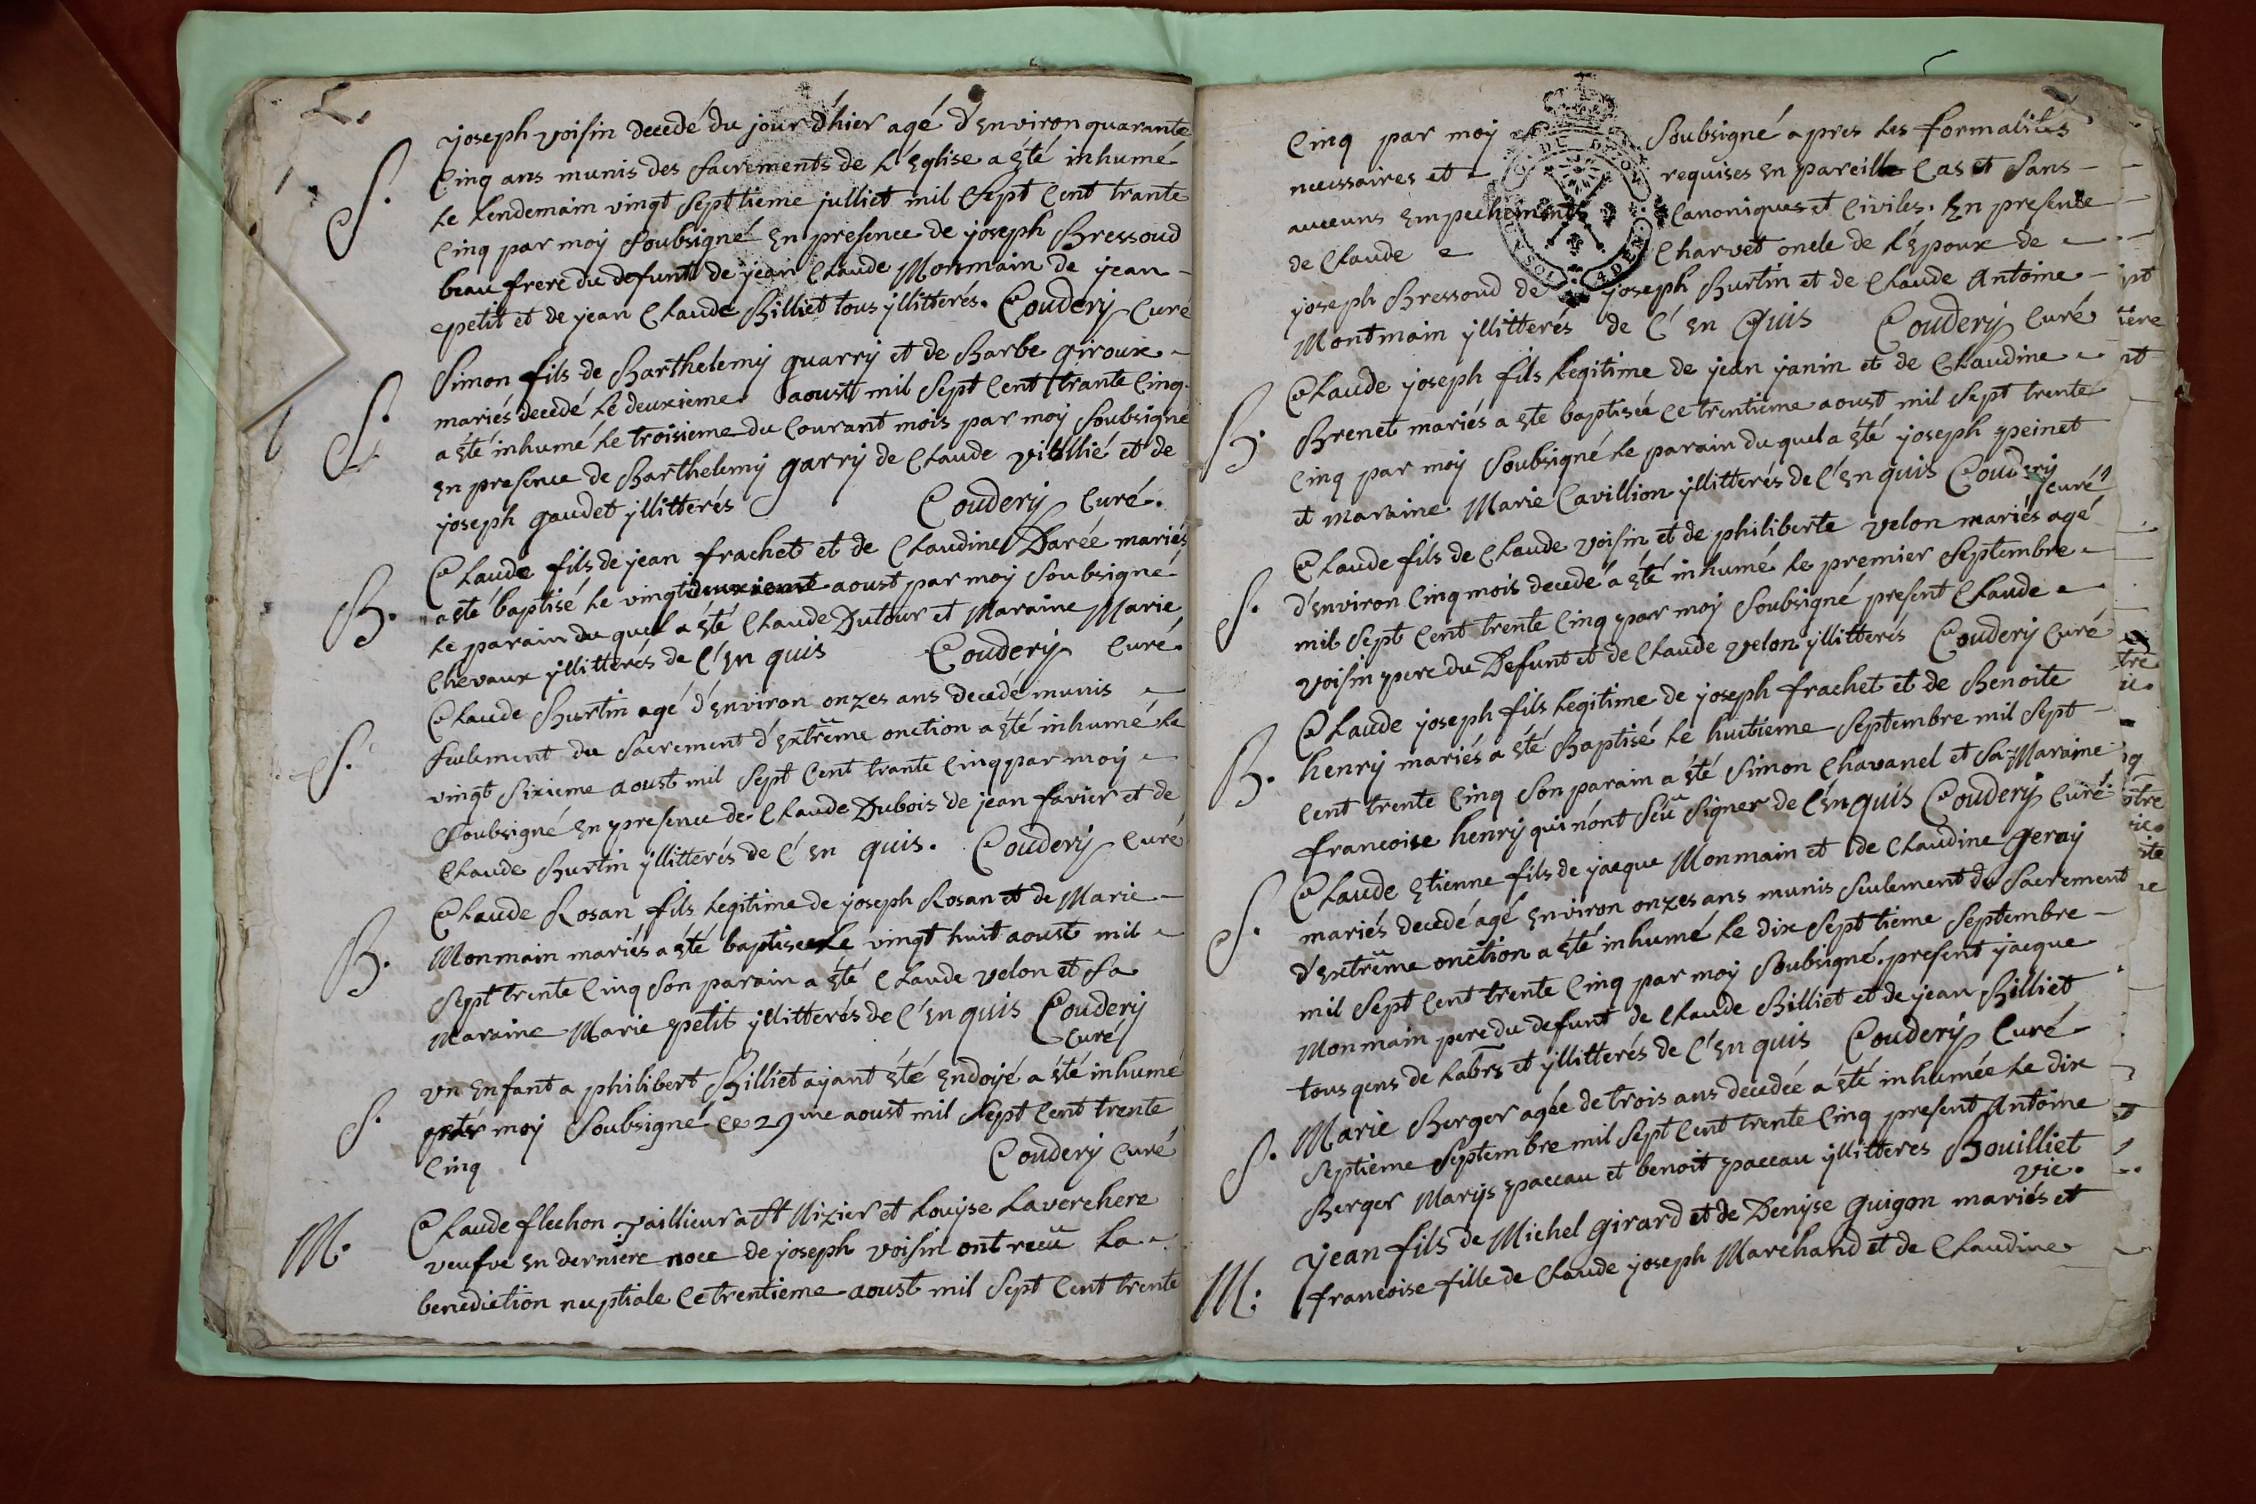 S.
joseph voisin decedé du jour d'hier agé d'Environ quarante
Cinq ans munis des Sacrements de L'Eglise a èté inhumé
Le Lendemain vingt Septtieme julliet mil Sept Cent trante
Cinq par moÿ Soubsigné En presence de joseph Bressoud
beau frere du defunt de jean Claude Monmain de jean
petit et de jean Claude Billiet tous ÿllitterés. Couderÿ Curé
S.
Simon fils de Barthelemÿ quarrÿ et de Barbe giroux
mariés decedé Le deuxieme aoust mil Sept Cent trante Cinq
a èté inhumé Le troisieme du Courant mois par moÿ Soubsigné
En presence de Barthelemÿ garrÿ de Claude vitallié et de
joseph gaudet ÿllitterés Couderÿ Curé.
B.
Claude fils de jean frachet et de Claudine Darée mariés
a èté baptisé Le vingtdeuxieme aoust par moÿ Soubsigné
Le parain du quel a èté Claude Dutour et Maraine Marie
Chevaux ÿllitterés de C'En quis Couderÿ Curé
S.
Claude Burtin agé d'Environ onzes ans decedé munis
Seulement du Sacrement d'Extrême onction a èté inhumé Le
vingt Sixieme aoust mil Sept Cent trante Cinq par moÿ
Soubsigné En presence de Claude Dubois de jean favier et de
Claude Burtin ÿllitterés de C'En quis. Couderÿ Curé
B.
Claude Rosan fils Legitime de joseph Rosan et de Marie
Monmain mariés a èté baptisee Le vingt huit aoust mil
Sept trente Cinq Son parain a èté Claude velon et Sa
Maraine Marie petit ÿllitterés de C'En quis Couderÿ
Curé
S.
un Enfant a philibert Billiet aÿant èté Endoÿé a èté inhumé
par moÿ Soubsigné Ce 29me aoust mil Sept Cent trente
Cinq Couderÿ Curé
M.
Claude flechon Taillieur a St Nizier et Louÿse Laverchere
veufve En derniere noce de joseph voisin ont recû La
benediction nuptiale Ce trentieme aoust mil Sept Cent trente
Cinq par moÿ Soubsigné apres Les formalités
necessaires et requises En pareille Cas et Sans
aucuns Empechements Canoniques et Civiles. En presence
de Claude Charvet oncle de L'Epoux de
joseph Bressoud de joseph Burtin et de Claude Antoine
Montmain ÿllitterés de C'En Quis Couderÿ Curé
B.
Claude joseph fils Legitime de jean janin et de Claudine
Brenet mariés a ete baptisée Ce trentieme aoust mil Sept trente
Cinq par moÿ Soubsigné Le parain du quel a èté joseph peinet
et maraine Marie Cavillion ÿllitterés de C'En quis Couderÿ
Curé
S.
Claude fils de Claude voisin et de philiberte velon mariés agé
d'Environ Cinq mois decedé a èté inhumé Le premier Septembre
mil Sept Cent trente Cinq par moÿ Soubsigné present Claude
voisin pere du Defunt et de Claude velon ÿllitterés Couderÿ Curé
B.
Claude joseph fils Legitime de joseph frachet et de Benoite
henrÿ mariés a èté Baptisé Le huitieme Septembre mil Sept
Cent trente Cinq Son parain a èté Simon Chavanel et Sa Maraine
francoise henrÿ qui n'ont Seû Signer de C'En quis Couderÿ Curé
S.
Claude Etienne fils de jacque Monmain et de Claudine geraÿ
mariés decedé agé Environ onzes ans munis Seulement du Sacrement
d'Extrême onction a èté inhumé Le dix Sept tieme Septembre
mil Sept Cent trente Cinq par moÿ Soubsigné. present jacque
Monmain pere du defunt de Claude Billiet et de jean Billiet
tous gens de Labrs et ÿllitterés de C'En quis Couderÿ Curé
S.
Marie Berger agée de trois ans decedée a èté inhumée Le dix
Septieme Septembre mil Sept Cent trente Cinq present Antoine
Berger Marÿs paccau et benoit paccau ÿllitteres Bouilliet
vic.
M.
Jean fils de Michel girard et de Denÿse guigon mariés et
francoise fille de Claude joseph Marchand et de Claudine